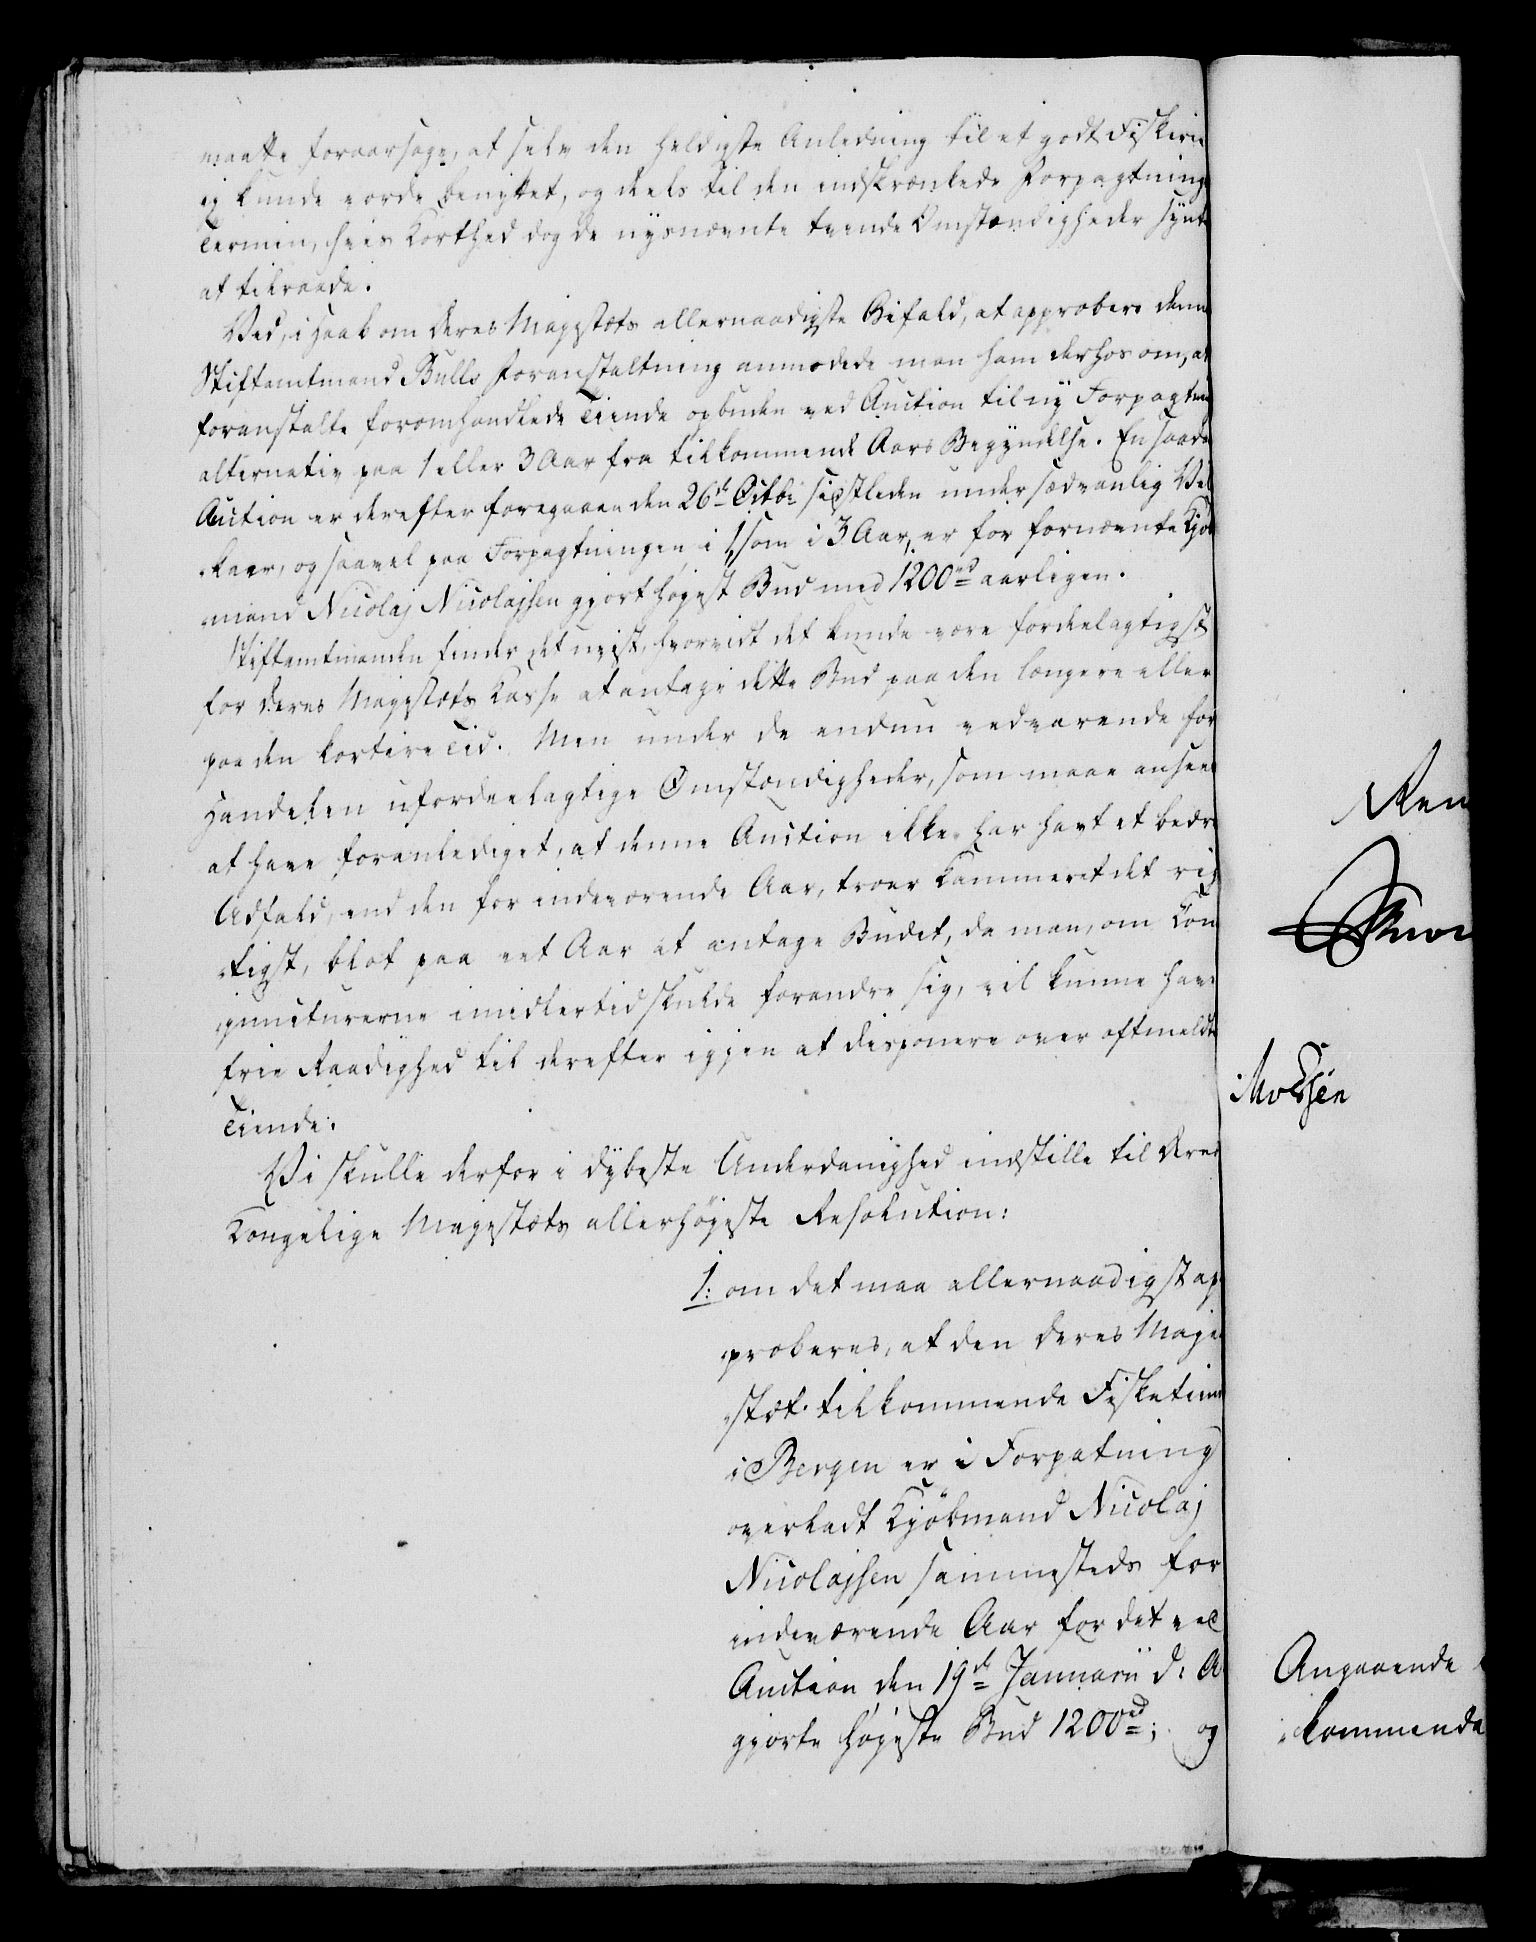 maatte foraarsage, at selv den heldigste Anledning til et godt Fiskerie
ej kunde vorde benyttet, og deels til den indskrænkede Forpagtnings
Termin, hvis Korthed dog de nysnævnte tvende Omstændigheder syntes
at tilraade.
Ved, i Haab om Deres Majestæts allernaadigste Bifald, at approbere denne
Stiftamtmand Bulls Foranstaltning anmodede man ham derhos om, at
foranstalte foromhandlede Tiende opbuden ved Auction til ny Forpagtning
alternativ paa 1 eller 3 Aar fra tilkommende Aars Begyndelse. En saadan
Auction er derefter foregaaen den 26de Octbr sidstleden under sædvanlig Vil
kaar, og saavel paa Forpagtningen i 1, som i 3 Aar, er for fornævnte Kjøb
mand Nicolaj Nicolajsen gjort høyest Bud med 1200 rd aarligen.
Stiftamtmanden finder det uvist, hvorvidt det kunde være fordeelagtigst
for Deres Majestæts Kasse at antage dette Bud paa den længere eller
paa den kortere Tid. Men under de endnu vedvarende for
Handelen ufordeelagtige Omstændigheder, som maae ansees
at have foranlediget, at denne Auction ikke har havt et bedre
Udfald, end den for indeværende Aar, troer Kammeret det rig
tigst, blot paa eet Aar at antage Budet, da man, om Con
juncturerne imidlertid skulde forandre sig, vil kunne have
frie Raadighed til derefter igjen at disponere over oftmeldte
Tiende.
Vi skulle derfor i dybeste Underdanighed indstille til Deres
Kongelige Majestæts allerhøjeste Resolution:
1: om det maa allernaadigst ap
proberes, at den Deres Maje
stæt tilkommende Fisketiende
i Bergen er i Forpatning
overladt Kjøbmand Nicolaj
Nicolajsen sammesteds for
indeværende Aar for det ved
Auction den 19de Januarii d: A
gjorte høyeste Bud 1200 rd; og
Ren
Mossin
Angaaende
kommende